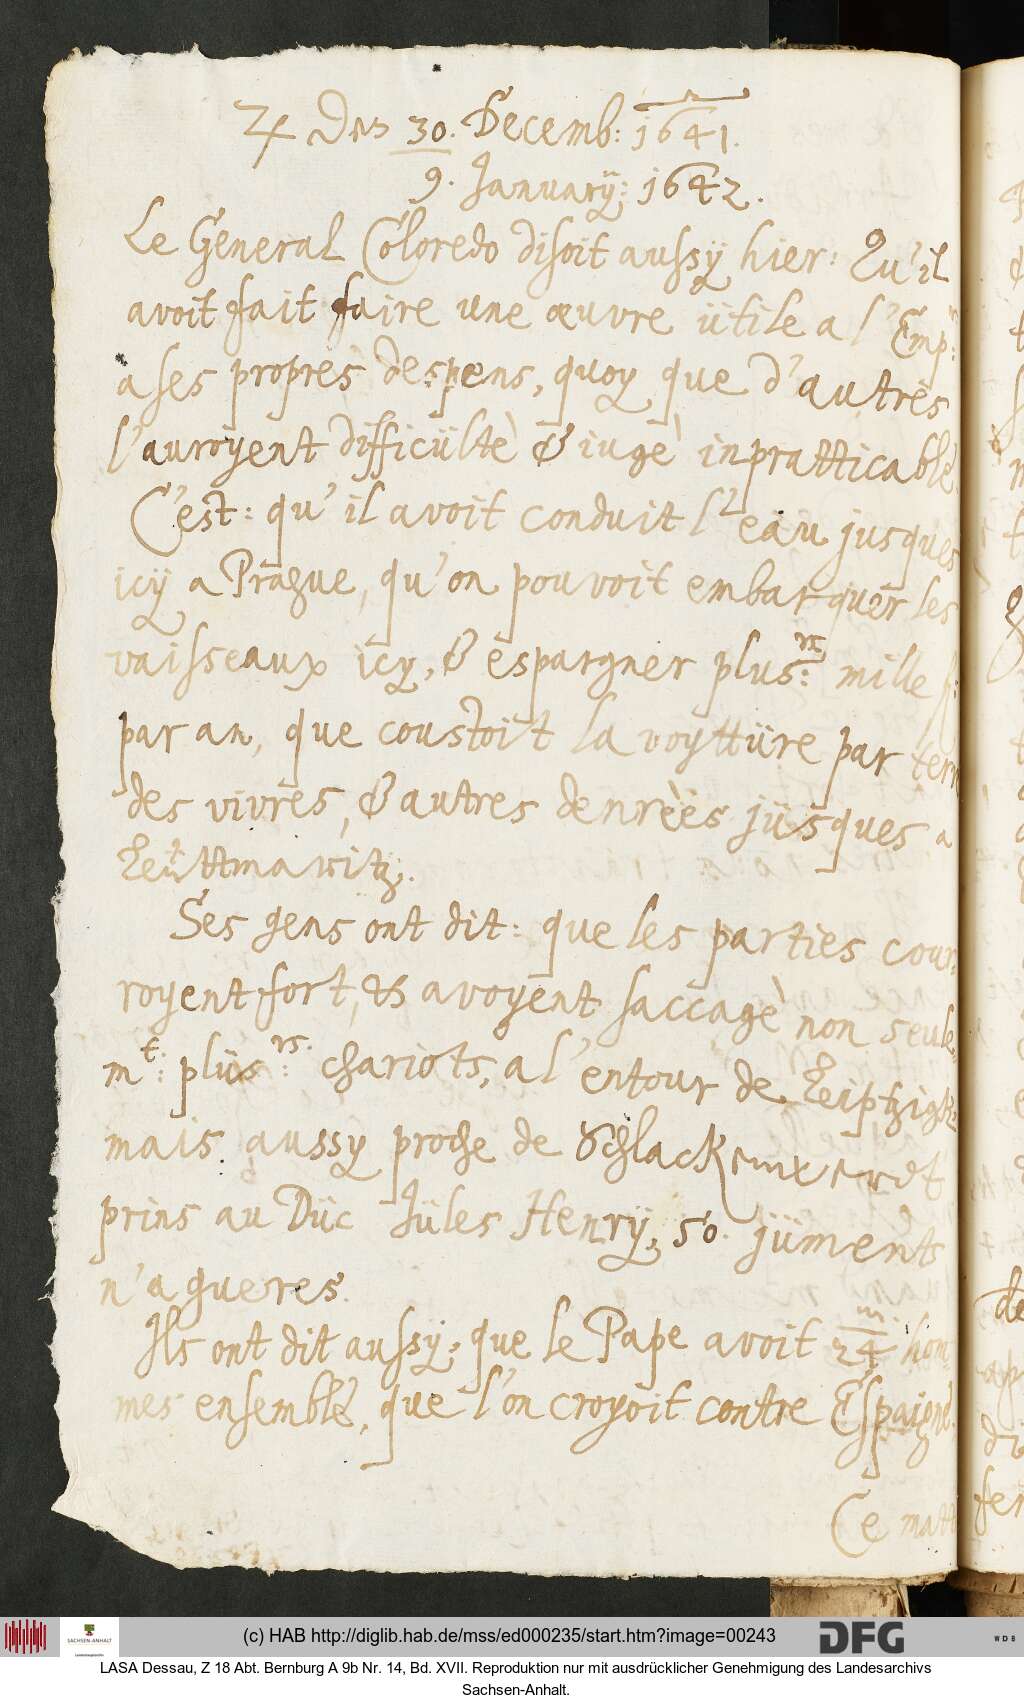 ♃ Den 30. Decemb: 1641.
9. January: 1642.
Le General Coloredo disoit aussÿ hier: Qu'il
avoit fait faire une œuvre ütile a l'Empr:
a ses propres despens, quoy que d'autres
l'auroyent difficültè & iugè inpratticable.
C'est: qu'il avoit conduit l'eau jusques
icÿ a Prague, qu'on pouvoit embarquer les
vaisseaux icy, & espargner plus:rs mille f:
par an, que coustoit la voyttüre par terre
des vivres, & autres denrèes jüsques a
Leüttmaritz.
Ses gens ont dit: que les parties cour-
royent fort, & avoyent saccagè non seule-
mt: plüs:rs. chariots, a l'entour de Leiptzigk,
mais aussy proche de Schlackenwerdt
prins au Düc Jüles Henrÿ, 50. jüments
n'agueres.
Ils ont dit aussÿ: que le Pape avoit 24m. hom-
mes ensemble, que l'on croyoit contre Espaigne.
Ce matt
(c) HAB http://diglib.hab.de/mss/ed000235/start.htm?image=00243
DFG
WDB
SACHSEN-ANHALT
LASA Dessau, Z 18 Abt. Bernburg A 9b Nr. 14, Bd. XVII. Reproduktion nur mit ausdrücklicher Genehmigung des Landesarchivs
Sachsen-Anhalt.